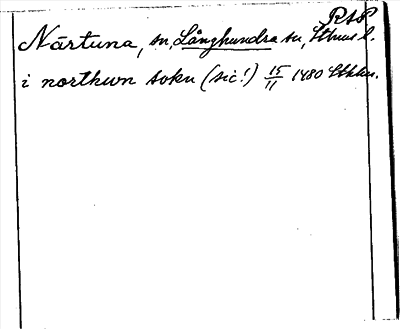 RAP
Närtuna, sn, Långhundra hd, Sthms l.
i northwn sokn (sic!) 15/11 1480 Sthlm.